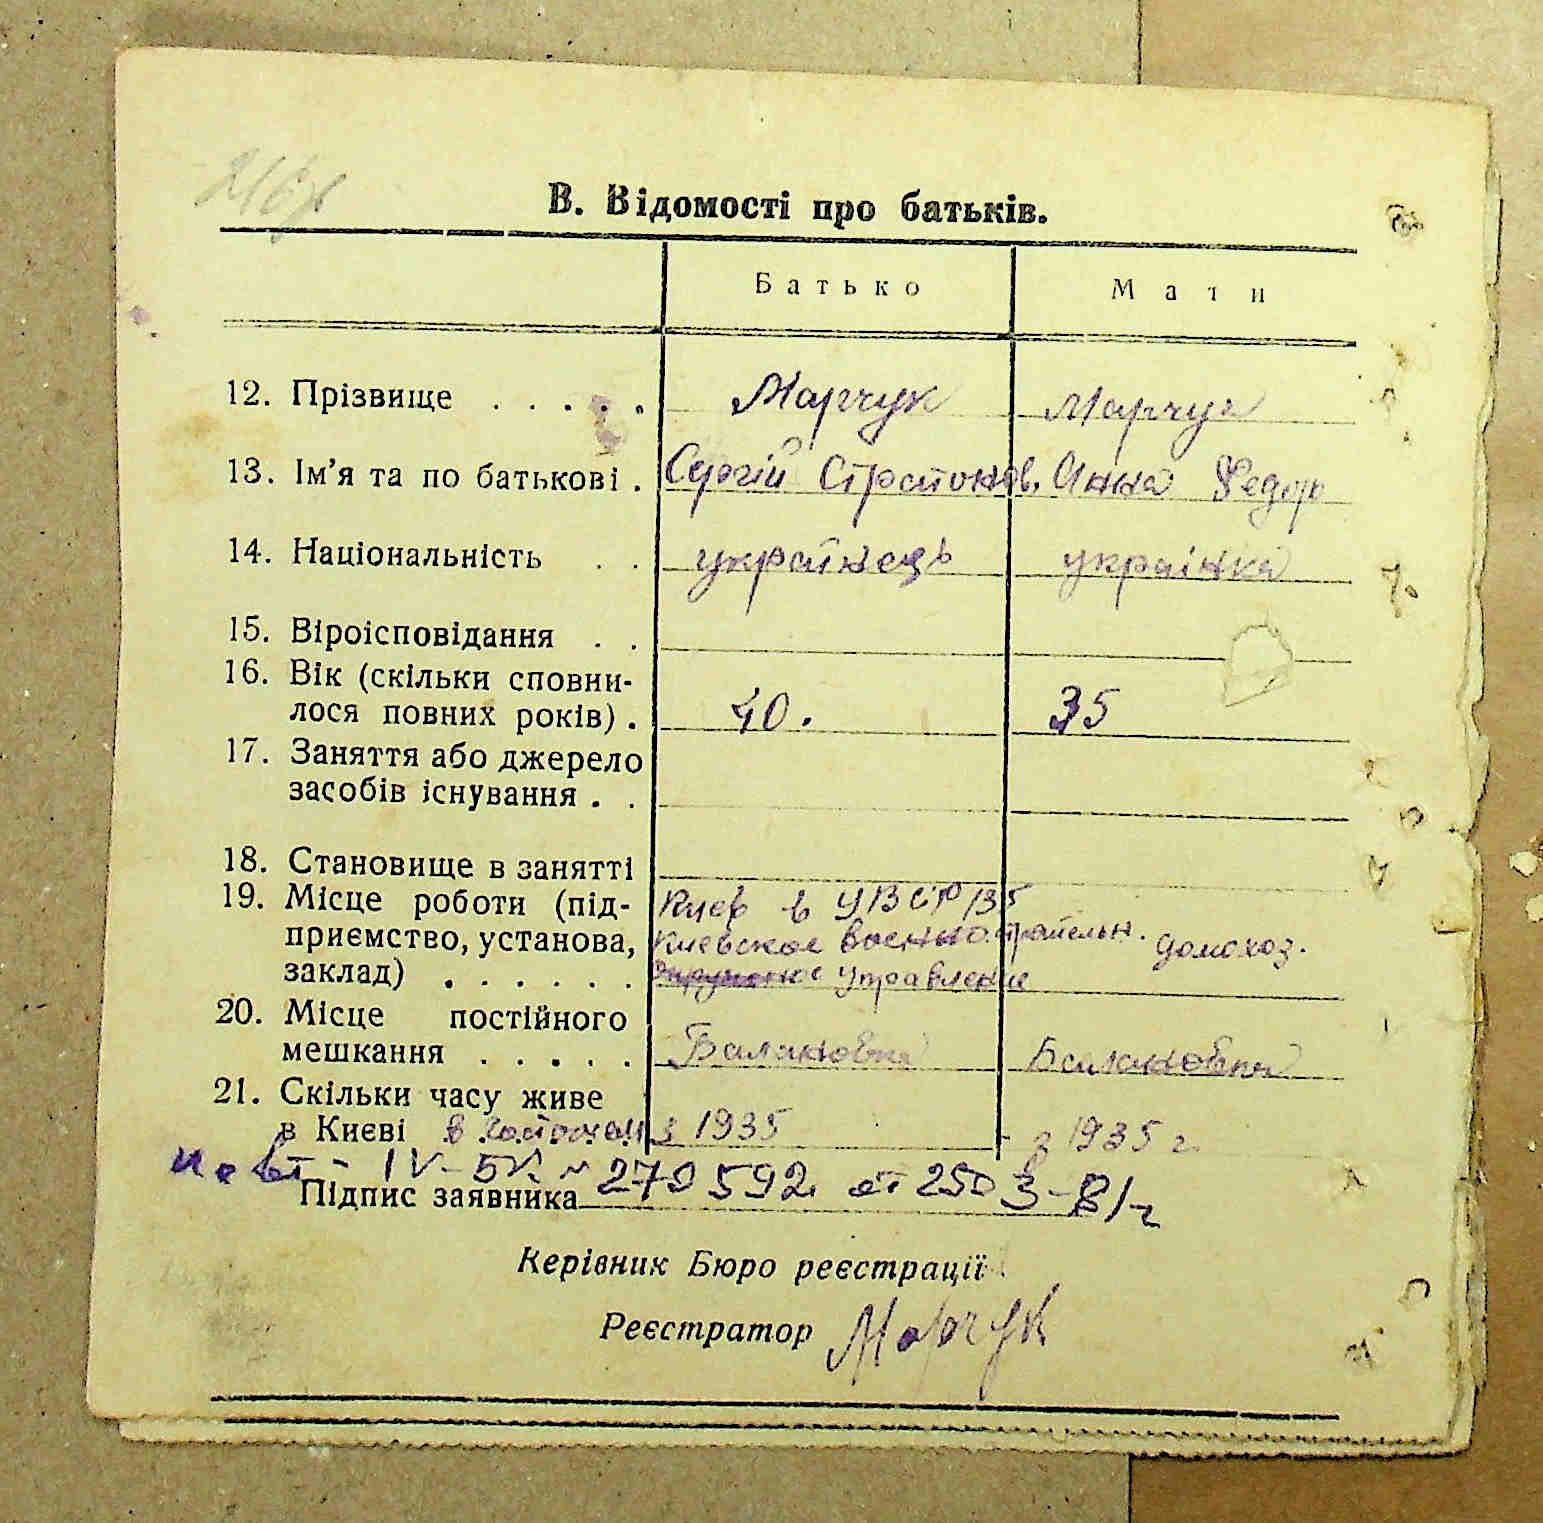 В. Відомості про батьків.
Батько Мати
12. Прізвище . . . . . Марчук Марчук
13. Ім'я та по батькові . Сергій Стратонов. Анна Федор
14. Національність . . українець українка
15. Віроісповідання . .
16. Вік (скільки сповни-
лося повних років) . 40. 35
17. Заняття або джерело
засобів існування . .
18. Становище в занятті
19. Місце роботи (під- Киев в УВСР 135
приємство, установа, Киевское военно строительн. домохоз.
заклад) . . . . . . управление
20. Місце постійного
мешкання . . . . .
21. Скільки часу живе
в Києві в з 1935 з 1935 г.
IV-БV № 270592 от 250
Підпис заявника
Керівник Бюро реєстрації
Реєстратор Марчук